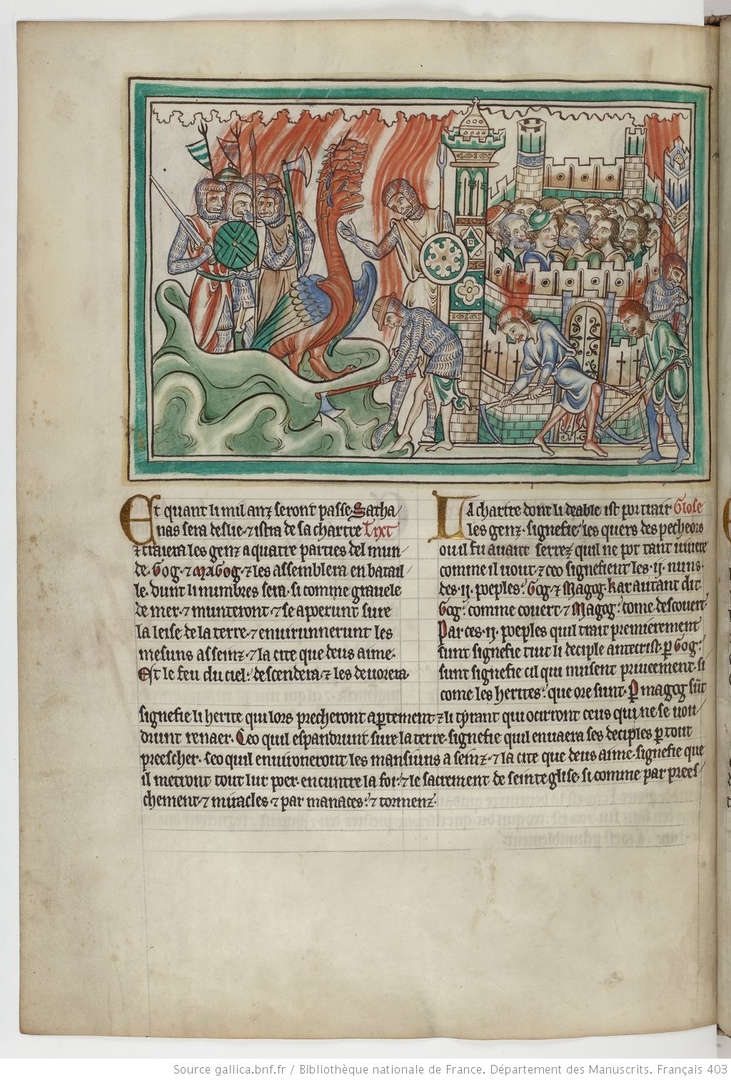 Et quant li mil anz seront passe Satha
nas sera deslie· ⁊ istra de sa chartre Tixt
⁊ traiera les genz a quatre parties del mun
de· Gog· ⁊ MaGog· ⁊ les assemblera en batail
le· dunt li numbres sera· si come gravele
de mer· ⁊ munteront· ⁊ se aperunt sure
la leise de la terre· ⁊ envirunnerunt les
mesuns a seinz· ⁊ la cite que deus aime·
Est le feu du ciel· descendera· ⁊ les devorera·
La chartre dont li deable ist portrair Glose
les genz· signefie les quers des pecheors
ou il fu avant serrez· quil ne pot tant nuire
comme il vout· ⁊ ceo signefient les ·ii· nuns·
des ·ii· poeples· Gog· ⁊ Magog· kar autant dit
Gog· comme covert· ⁊ Magog· come descovert·
Par ces ·ii· poeples quil trait premierement
sunt signefie tuit li deciple antecrist· p Gog·
sunt signefie cil qui nuisent priveement· si
come les herites· que ore sunt· P magog sūt
signefie li herite qui lors precheront apertement· ⁊ li tyrant qui ocirront ceus qui ne se vou
drunt renaer· Ceo quil espandrunt sure la terre· signefie quil envaera ses deciples p tout
preescher· ⁊ ceo quil environeront les mansiuns a seinz· ⁊ la cite que deus aime· signefie que
il metront tout lur poer· encuntre la foi· ⁊ le sacrement de seinte glise· si comme par prees
chement· ⁊ miracles· ⁊ par manaces· ⁊ tormenz·
Source gallica.bnf.fr / Bibliothèque nationale de France. Département des Manuscrits. Français 403